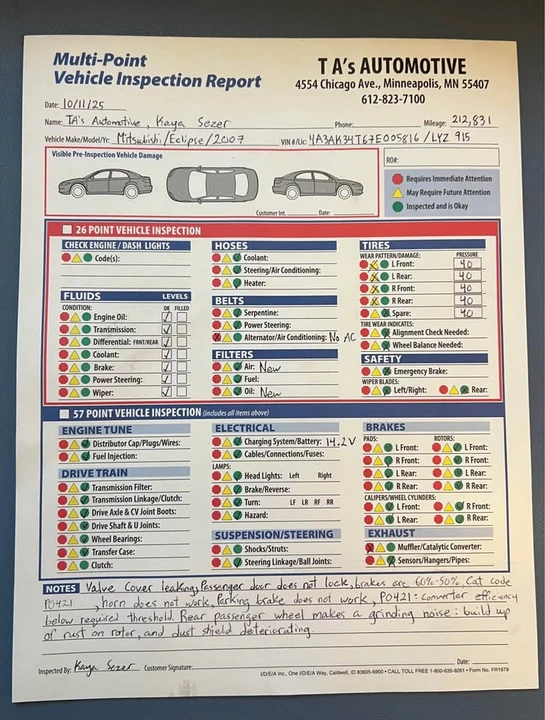 Multi-Point
Vehicle Inspection Report
T A's AUTOMOTIVE
4554 Chicago Ave., Minneapolis, MN 55407
612-823-7100
Date: 10/11/25
Name: TA's Automotive, Kaya Sezer Phone: Mileage: 212,831
Vehicle Make/Model/Yr: Mitsubishi/Eclipse/2007 VIN #/Lic: 4A3AK34T67E005816 / LYZ 915
Visible Pre-Inspection Vehicle Damage
Customer Int. Date:
RO#:
Requires Immediate Attention
May Require Future Attention
Inspected and is Okay
26 POINT VEHICLE INSPECTION
CHECK ENGINE / DASH LIGHTS
Code(s):
FLUIDS LEVELS
CONDITION: OK FILLED
Engine Oil:
Transmission:
Differential: FRNT/REAR
Coolant:
Brake:
Power Steering:
Wiper:
HOSES
Coolant:
Steering/Air Conditioning:
Heater:
BELTS
Serpentine:
Power Steering:
Alternator/Air Conditioning: No AC
FILTERS
Air: New
Fuel:
Oil: New
TIRES
WEAR PATTERN/DAMAGE: PRESSURE
L Front: 40
L Rear: 40
R Front: 40
R Rear: 40
Spare: 40
TIRE WEAR INDICATES:
Alignment Check Needed:
Wheel Balance Needed:
SAFETY
Emergency Brake:
WIPER BLADES:
Left/Right: Rear:
57 POINT VEHICLE INSPECTION (includes all items above)
ENGINE TUNE
Distributor Cap/Plugs/Wires:
Fuel Injection:
DRIVE TRAIN
Transmission Filter:
Transmission Linkage/Clutch:
Drive Axle & CV Joint Boots:
Drive Shaft & U Joints:
Wheel Bearings:
Transfer Case:
Clutch:
ELECTRICAL
Charging System/Battery: 14.2V
Cables/Connections/Fuses:
LAMPS:
Head Lights: Left Right
Brake/Reverse:
Turn: LF LR RF RR
Hazard:
SUSPENSION/STEERING
Shocks/Struts:
Steering Linkage/Ball Joints:
BRAKES
PADS: ROTORS:
L Front: L Front:
R Front: R Front:
L Rear: L Rear:
R Rear: R Rear:
CALIPERS/WHEEL CYLINDERS:
L Front: R Front:
L Rear: R Rear:
EXHAUST
Muffler/Catalytic Converter:
Sensors/Hangers/Pipes:
NOTES Valve Cover leaking, Passenger door does not lock, brakes are 60%-50%, Cat code
P0421, horn does not work, Parking brake does not work, P0421: converter efficiency
below required threshold. Rear passenger wheel makes a grinding noise: build up
of rust on rotor, and dust shield deteriorating.
Inspected By: Kaya Sezer Customer Signature: Date:
I/D/E/A Inc., One I/D/E/A Way, Caldwell, ID 83605-6900 • CALL TOLL FREE 1-800-635-9261 • Form No. FR1979